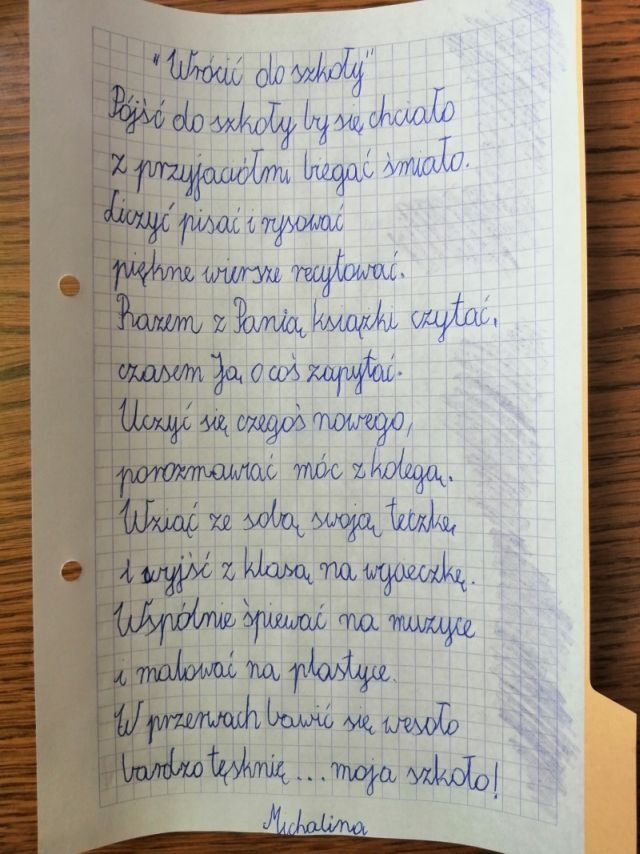 "Wrócić do szkoły"
Pójść do szkoły by się chciało
z przyjaciółmi biegać śmiało.
Liczyć pisać i rysować
piękne wiersze recytować.
Razem z Panią książki czytać,
czasem Ją o coś zapytać.
Uczyć się czegoś nowego,
porozmawiać móc z kolegą.
Wziąć ze sobą swoją teczkę
i wyjść z klasą na wycieczkę.
Wspólnie śpiewać na muzyce
i malować na plastyce.
W przerwach bawić się wesoło
bardzo tęsknię... moja szkoło!
Michalina